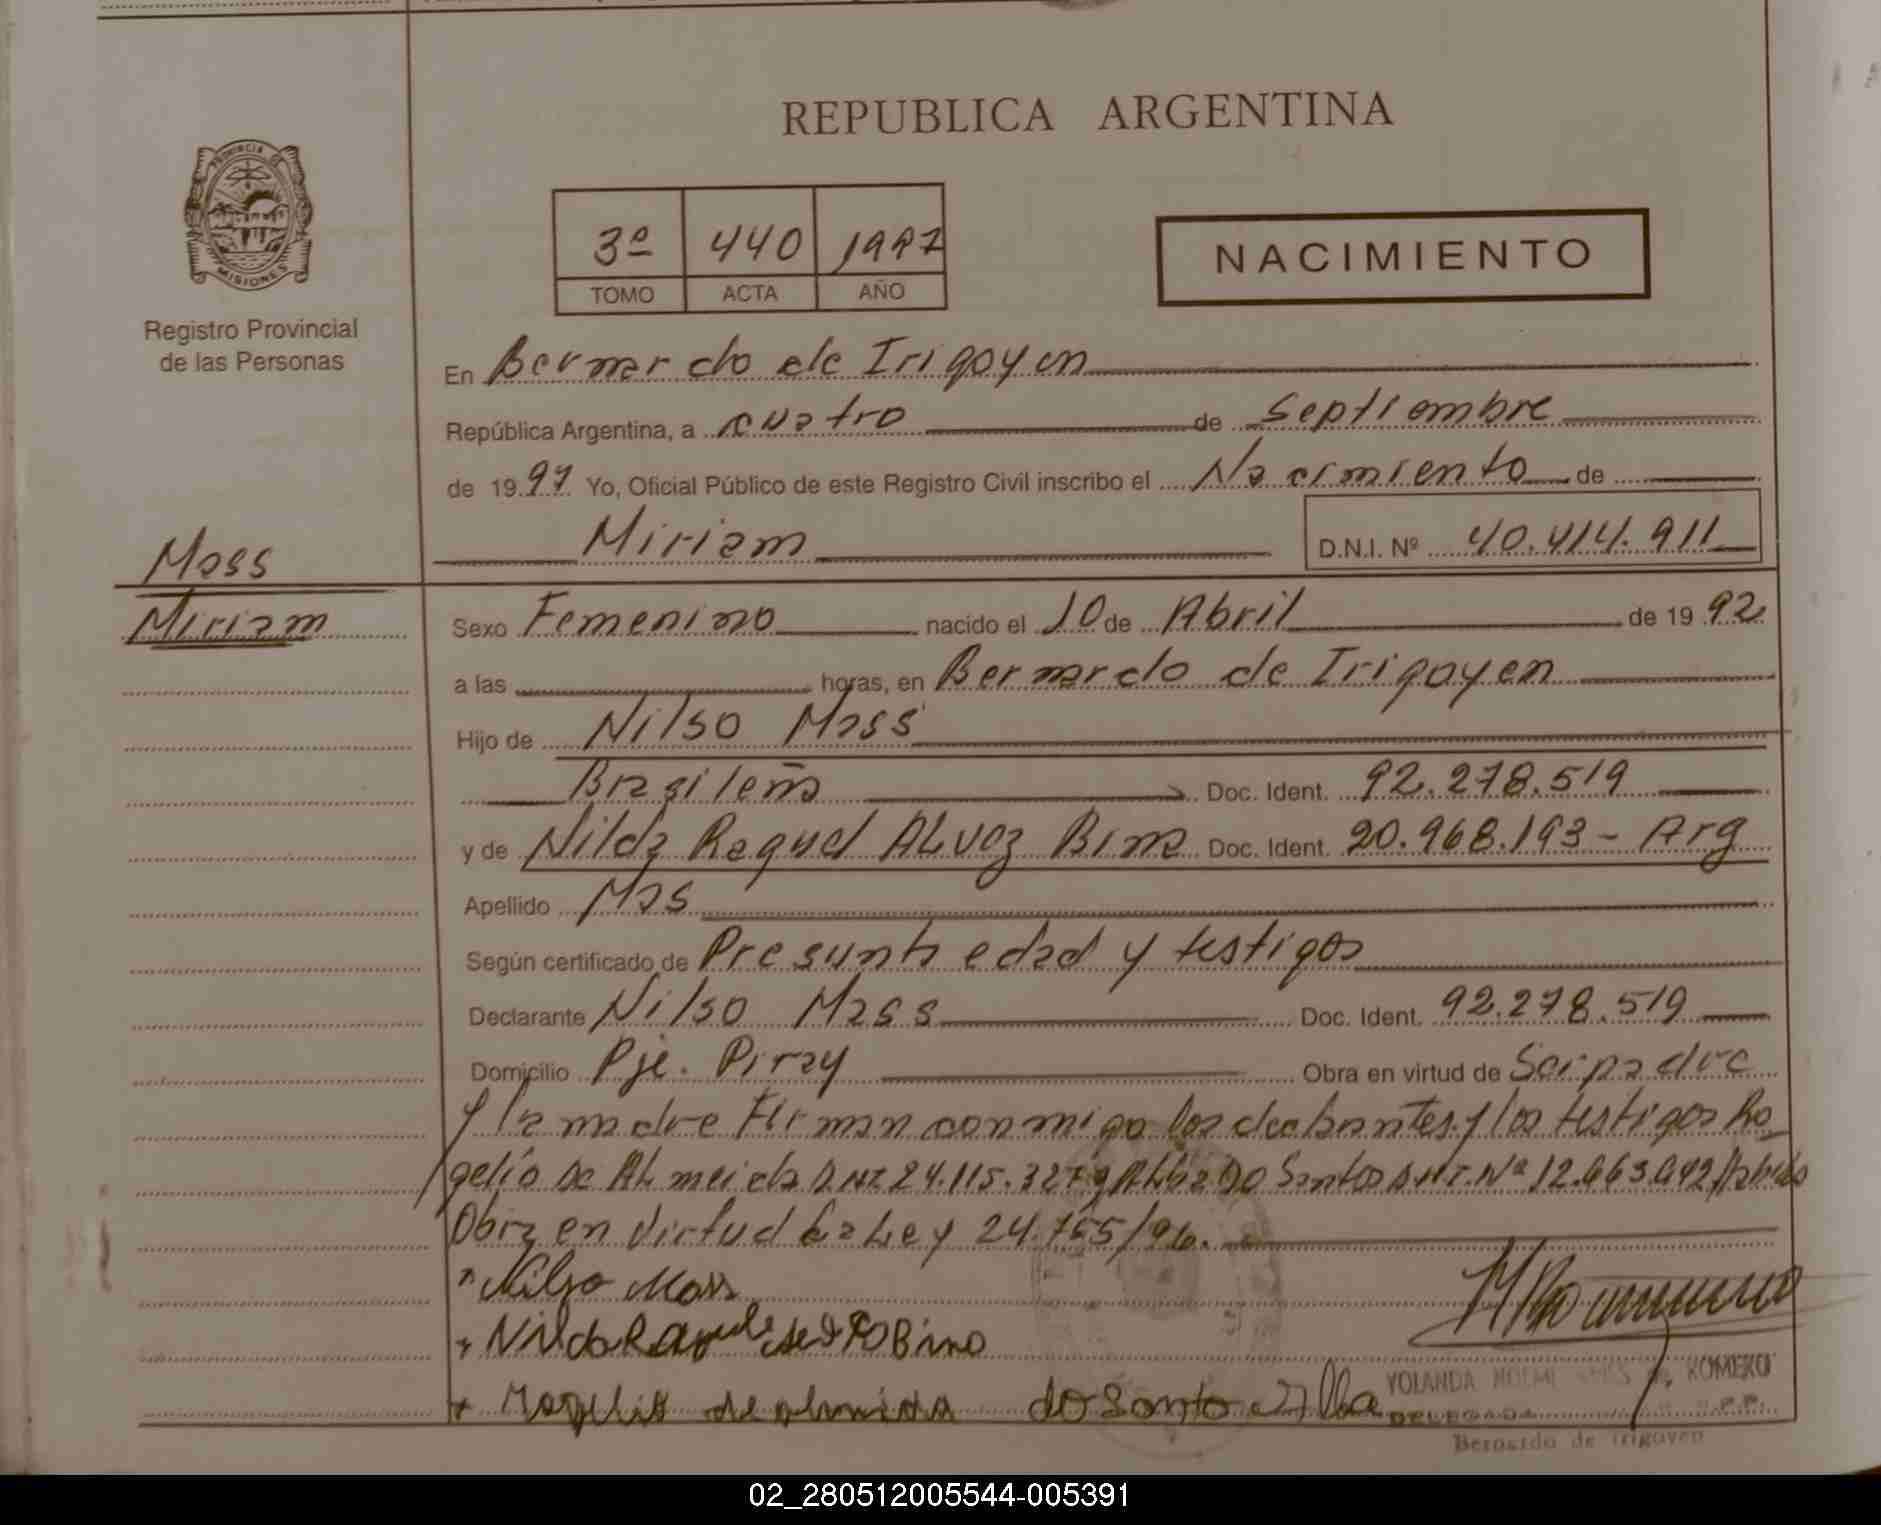 REPUBLICA ARGENTINA
PROVINCIA DE
MISIONES
Registro Provincial
de las Personas
3º 440 1997
TOMO ACTA AÑO
NACIMIENTO
En Bernardo de Irigoyen
República Argentina, a cuatro de Septiembre
de 1997 Yo, Oficial Público de este Registro Civil inscribo el Nacimiento de
Miriam D.N.I. Nº 40.414.911
Mass
Miriam
Sexo Femenino nacido el 10 de Abril de 1992
a las horas, en Bernardo de Irigoyen
Hijo de Nilso Mass
Brasileña Doc. Ident. 92.278.519
y de Nilda Raquel Alvez Bino Doc. Ident. 20.968.193 - Arg
Apellido Mas
Según certificado de Presunta edad y testigos
Declarante Nilso Mass Doc. Ident. 92.278.519
Domicilio Pje. Piray Obra en virtud de Ser padre
y la madre Firman conmigo los declarantes y los testigos Ro
gelio De Almeida DNI 24.115.327 y Alba Do Santos D.N.I. Nº
Obra en Virtud La Ley 24.755/96.
Nilso Mass
Nilda Raquel Bino
Rogelio de almeida do Santo Alba
YOLANDA NOEMI de ROMERO
DELEGADA
Bernardo de Irigoyen
02_280512005544-005391